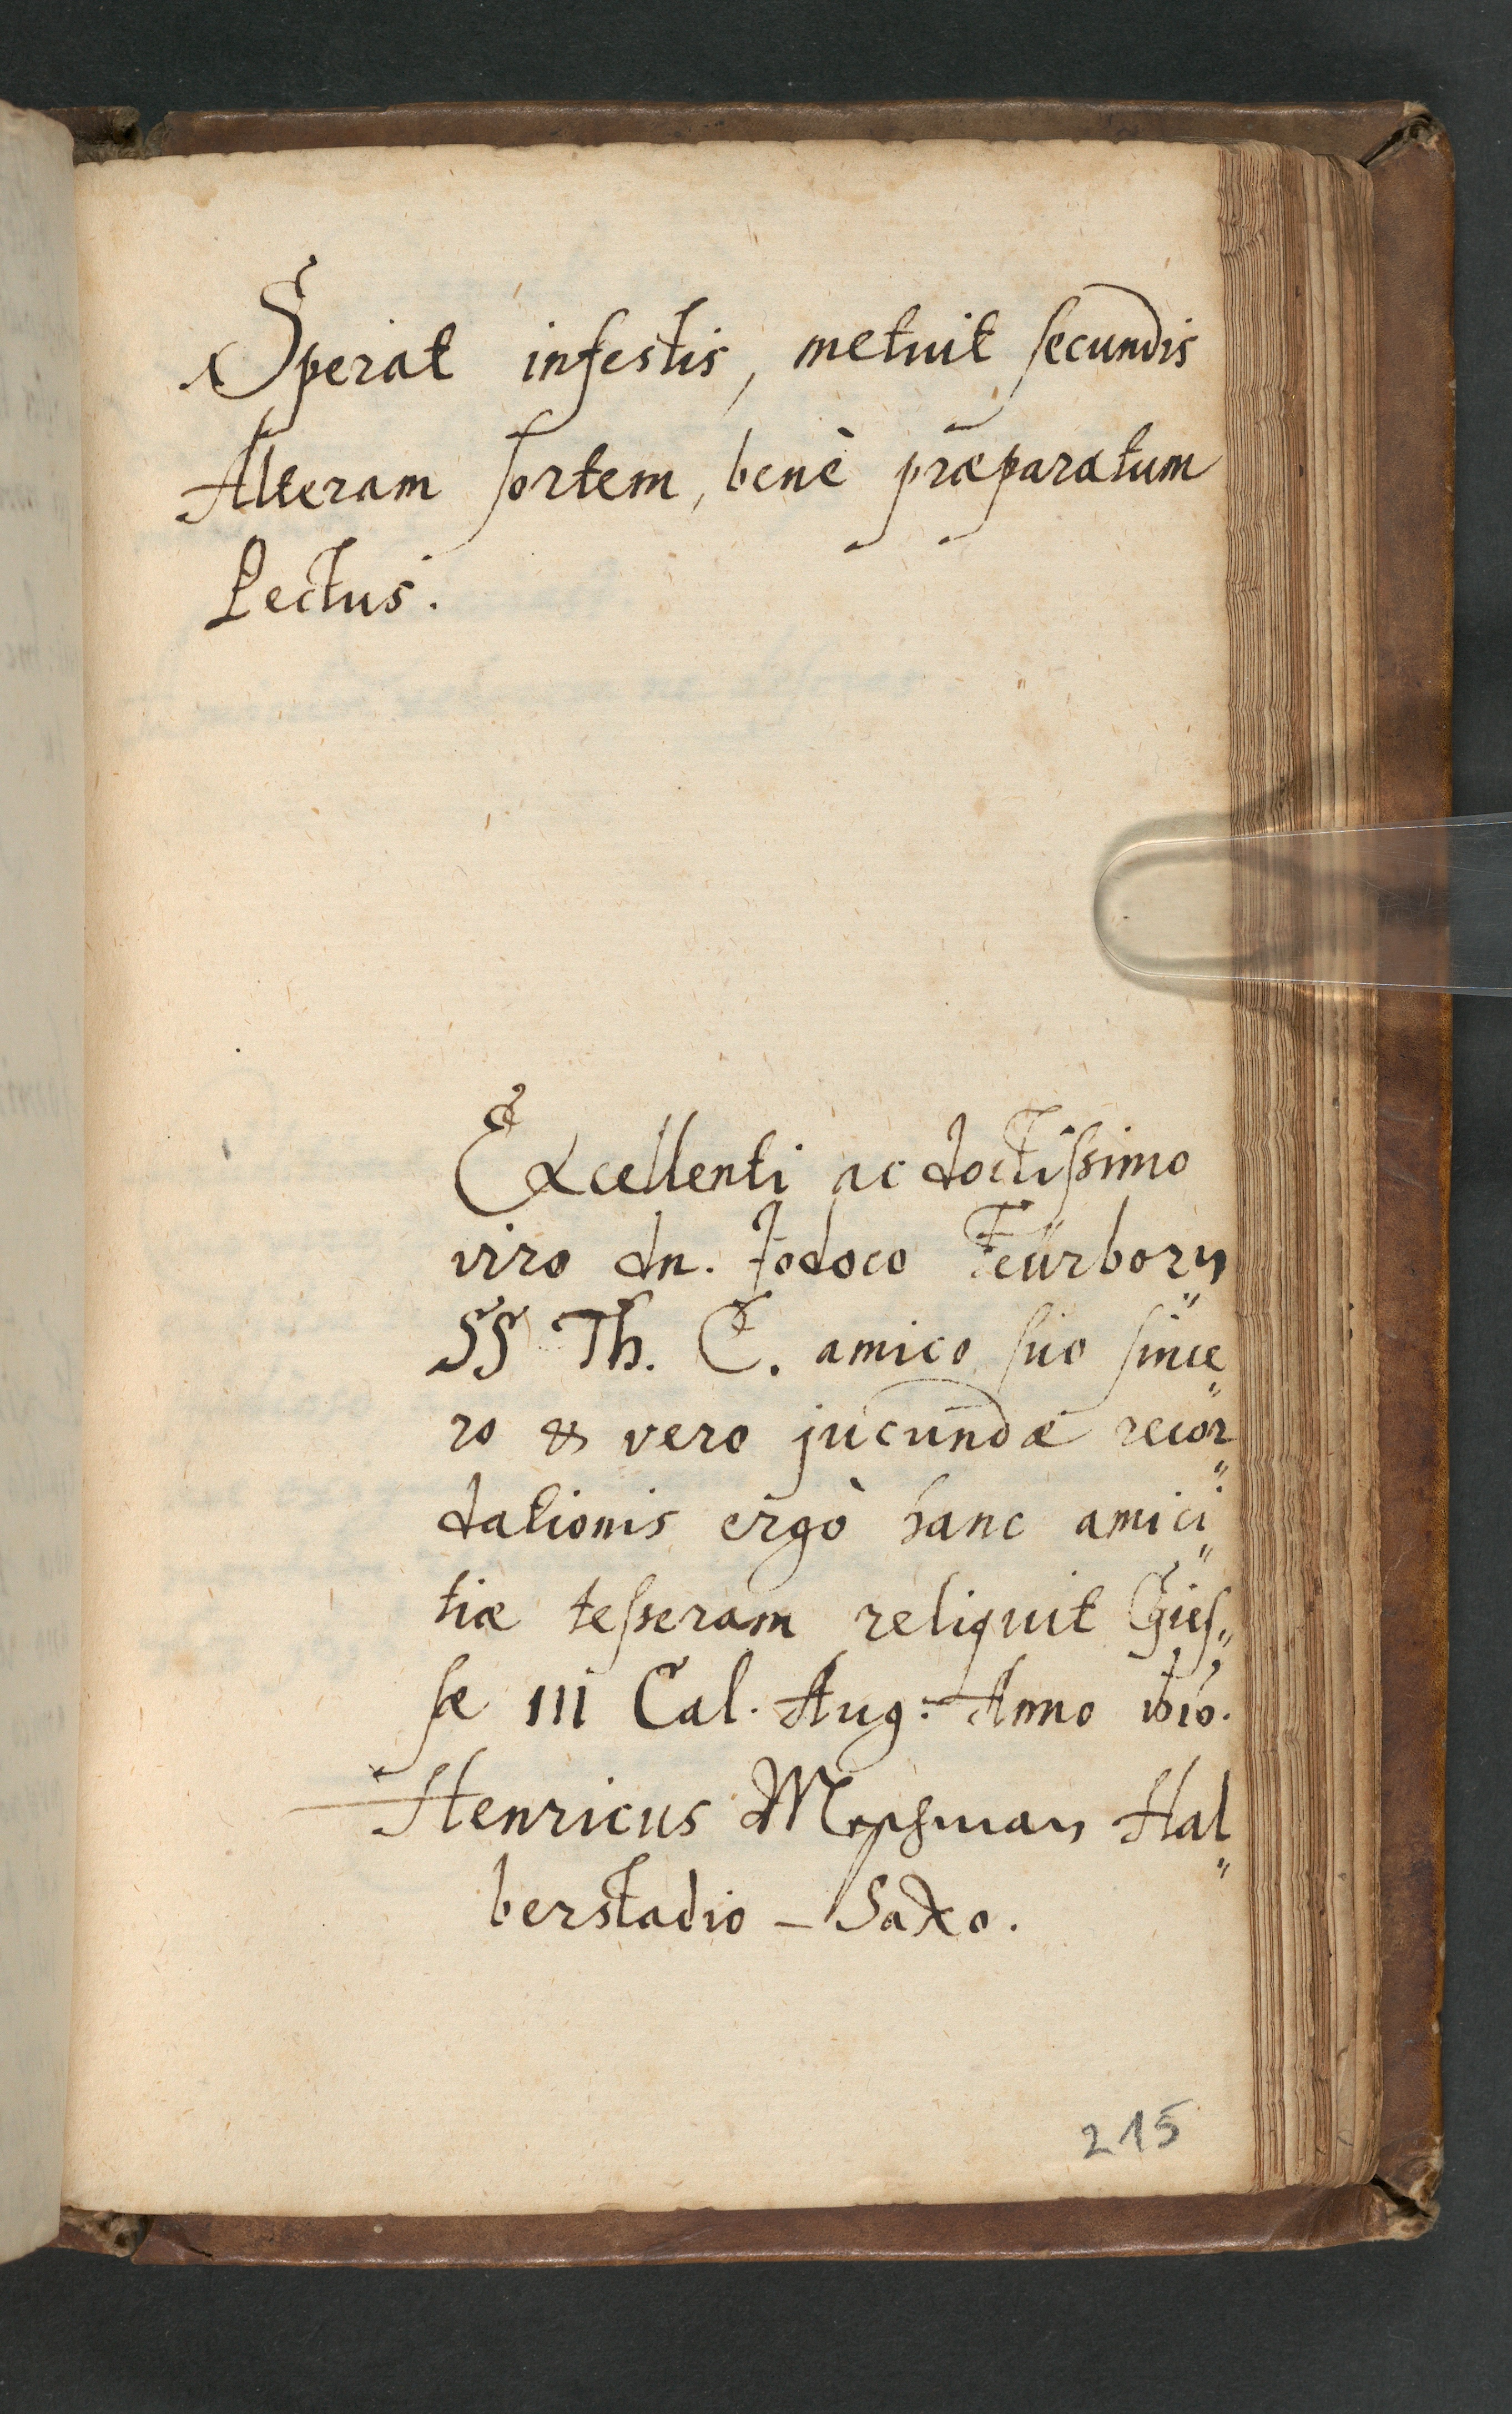 Sperat infestis, metuit secundis
Alteram sortem, benè præparatum
Pectus.
Excellenti ac doctissimo
viro dn. Jodoco Feürborn
SS Th. C. amico suo since„
ro & vero jucundæ recor„
dationis ergò hanc amici„
tiæ tesseram reliquit Gies„
sæ III Cal. Aug: Anno 1616.
Henricus Hal„
berstadio-Saxo.
215